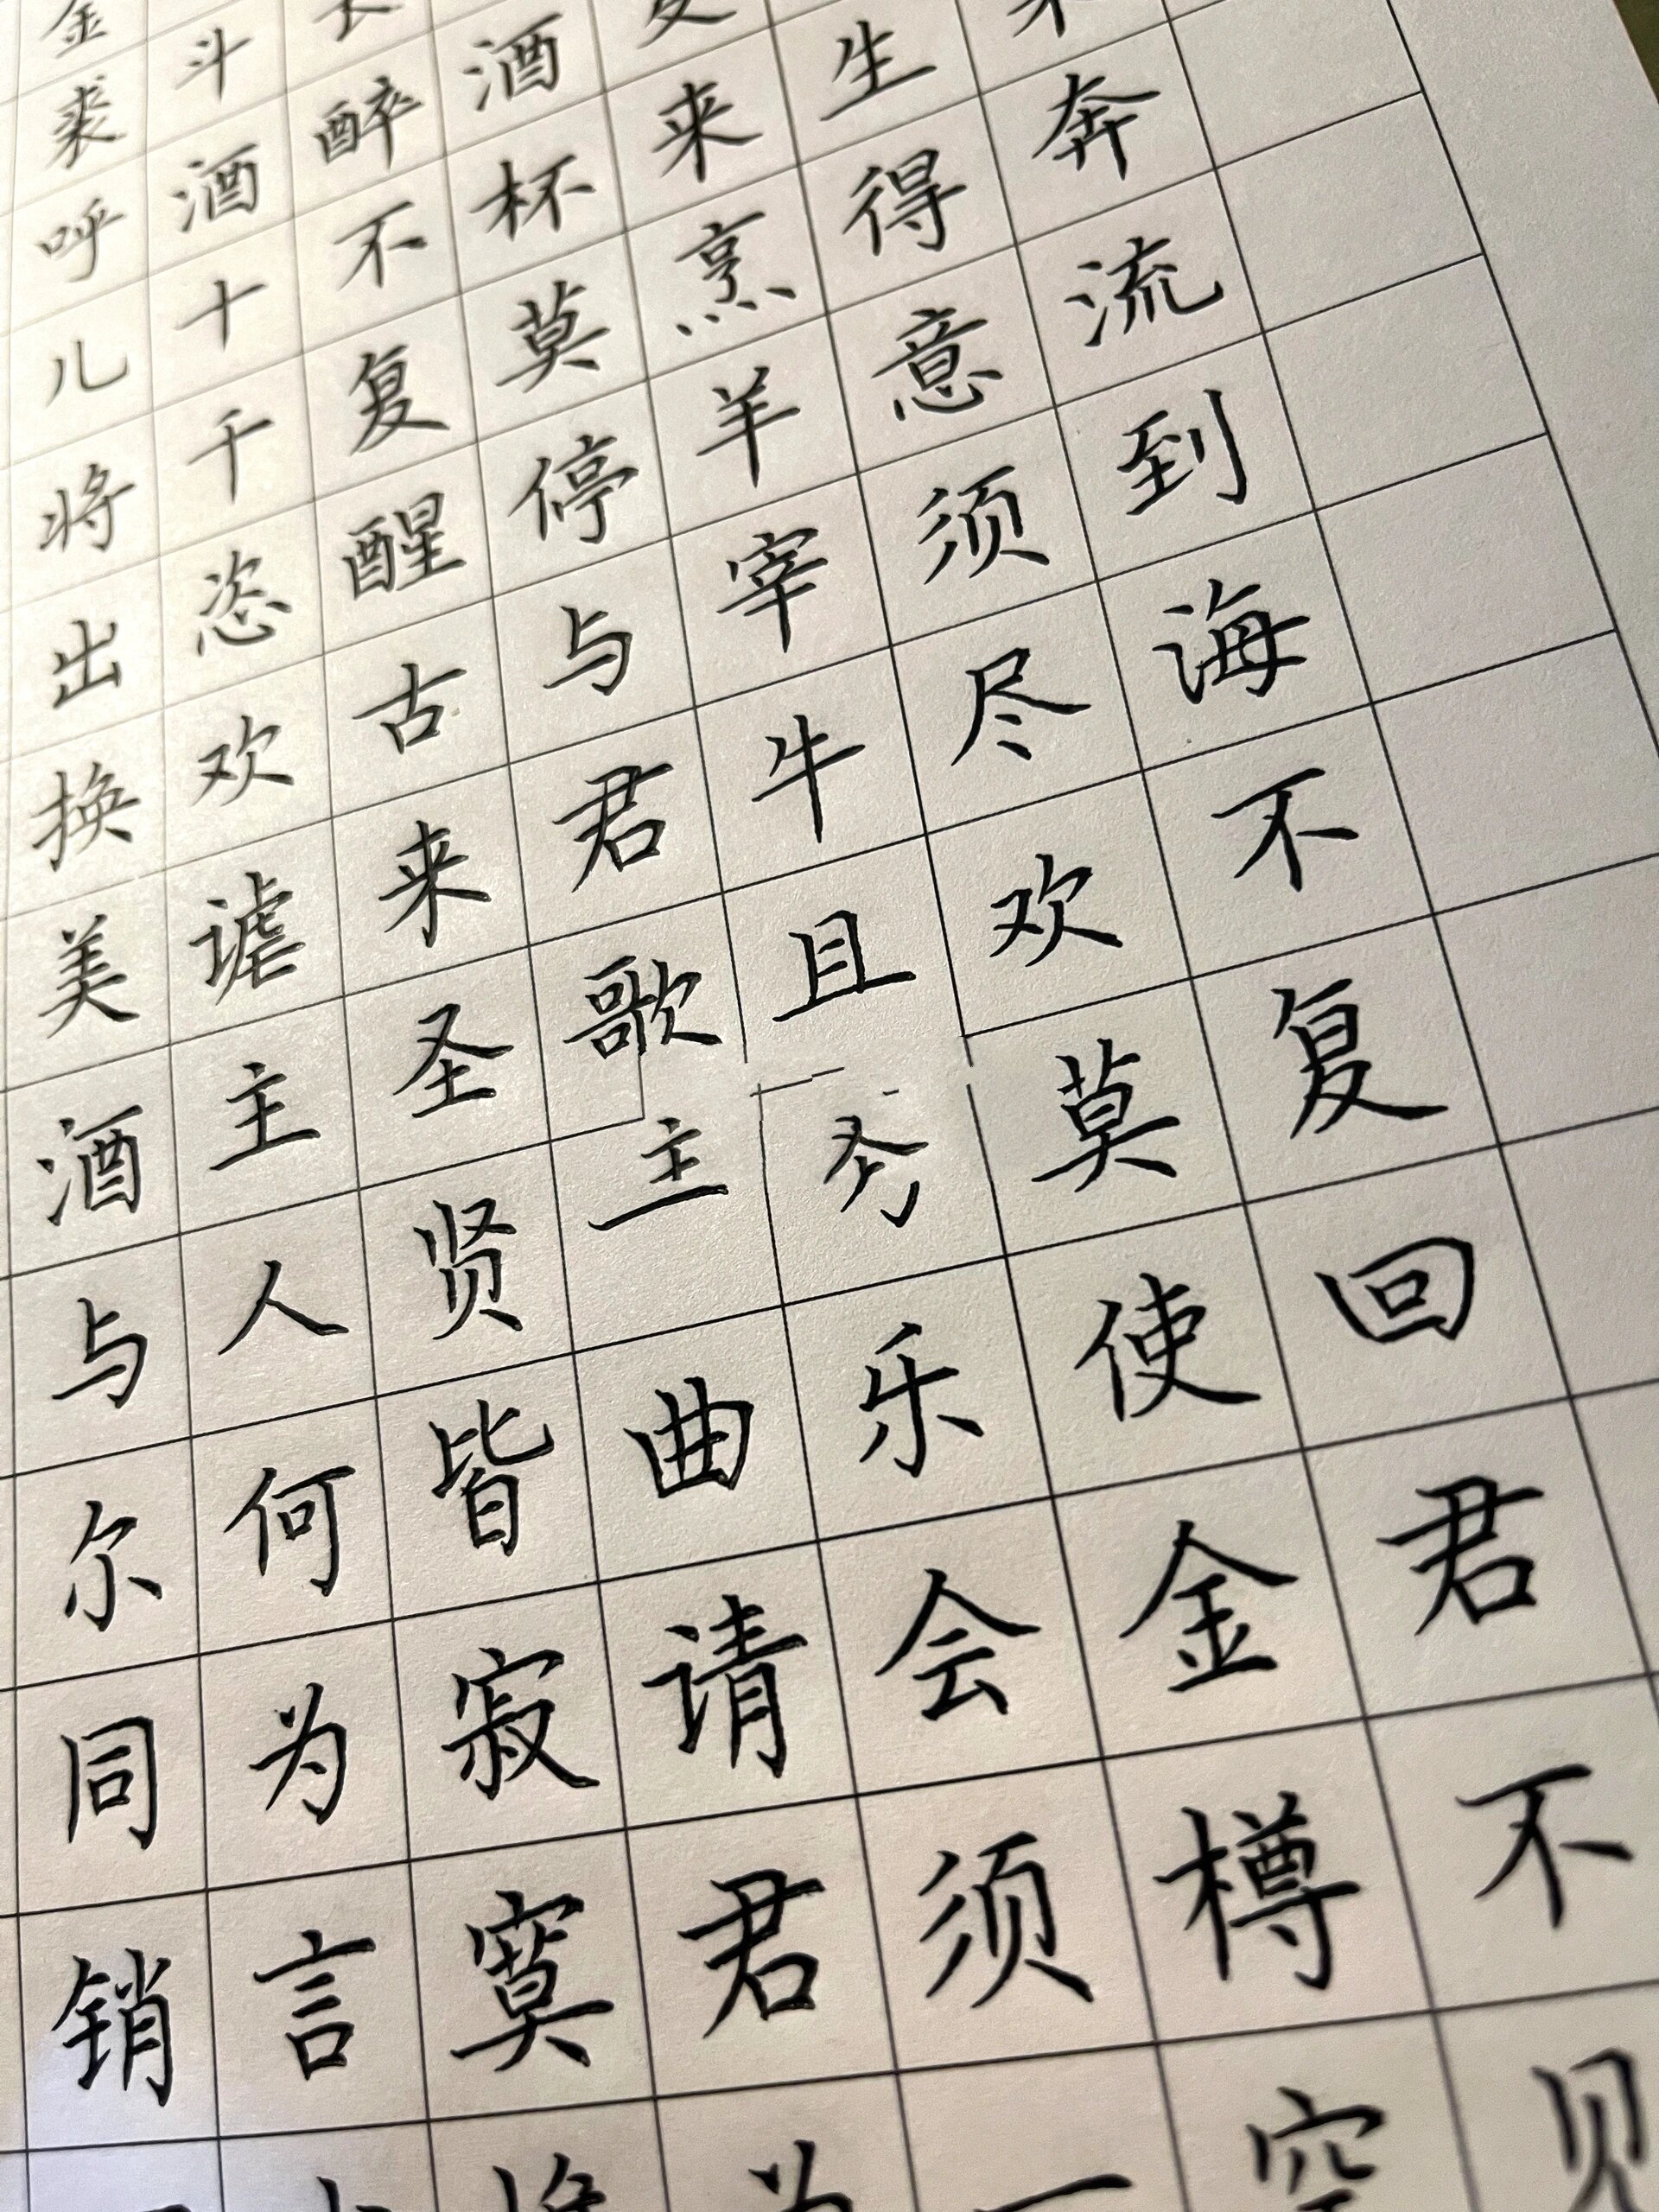 奔流到海不复回君不见
生得意须尽欢莫使金樽空
来烹羊宰牛且乐会须一
酒杯莫停与君歌主曲请君
醉不复醒古来圣贤皆寂寞
斗酒十千恣欢谑主人何为言
金裘呼儿将出换美酒与尔同销